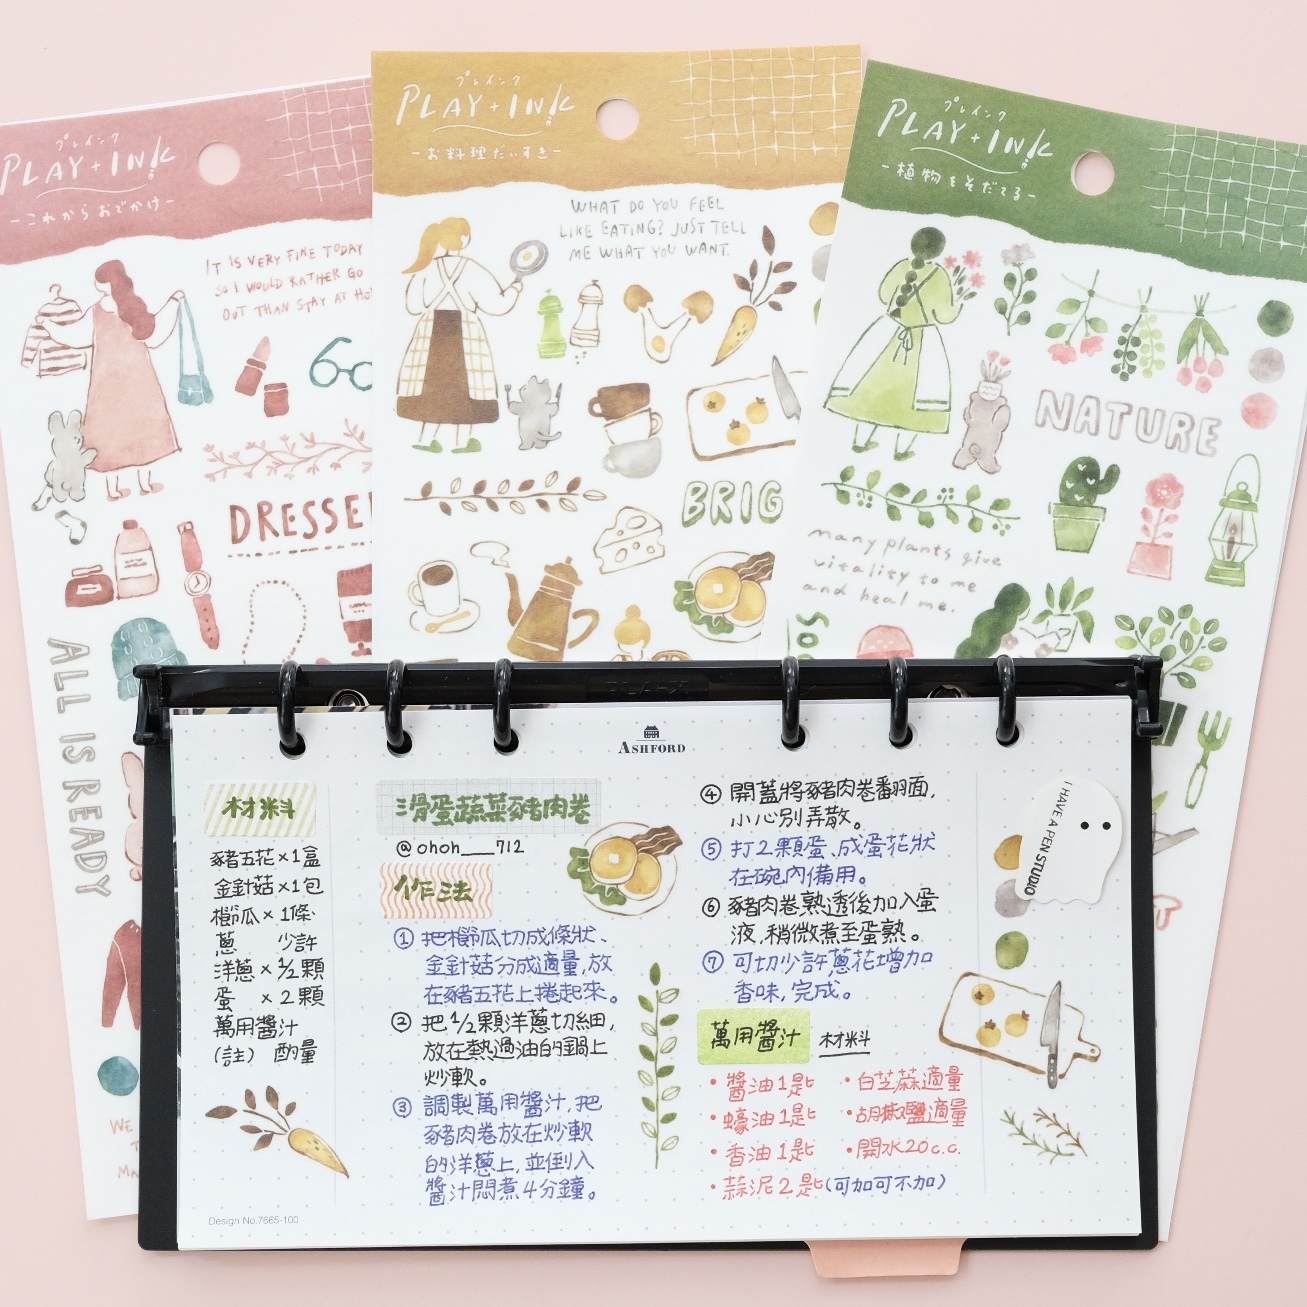 プレインク
PLAY+INK
-これからおでかけ-
IT IS VERY FINE TODAY
SO I WOULD RATHER GO
OUT THAN STAY AT HO
DRESSE
ALL IS READY
WE
プレインク
PLAY+INK
-お料理だいすき-
WHAT DO YOU FEEL
LIKE EATING? JUST TELL
ME WHAT YOU WANT.
BRIG
プレインク
PLAY+INK
-植物をそだてる-
NATURE
many plants give
vitality to me
and heal me.
ASHFORD
材料
豬五花×1盒
金針菇×1包
櫛瓜×1條
蔥 少許
洋蔥×1/2顆
蛋 ×2顆
萬用醬汁
(註) 酌量
Design No.7665-100
滑蛋蔬菜豬肉卷
@ohoh___712
作法
① 把櫛瓜切成條狀、
金針菇分成適量,放
在豬五花上捲起來。
② 把1/2顆洋蔥切細,
放在熱過油的鍋上
炒軟。
③ 調製萬用醬汁,把
豬肉卷放在炒軟
的洋蔥上,並倒入
醬汁悶煮4分鐘。
④ 開蓋將豬肉卷翻面,
小心別弄散。
⑤ 打2顆蛋、成蛋花狀
在碗內備用。
⑥ 豬肉卷熟透後加入蛋
液,稍微煮至蛋熟。
⑦ 可切少許蔥花增加
香味,完成。
萬用醬汁 材料
・醬油1匙 ・白芝蔴適量
・蠔油1匙 ・胡椒鹽適量
・香油1匙 ・開水20c.c.
・蒜泥2匙(可加可不加)
I HAVE A PEN STUDIO